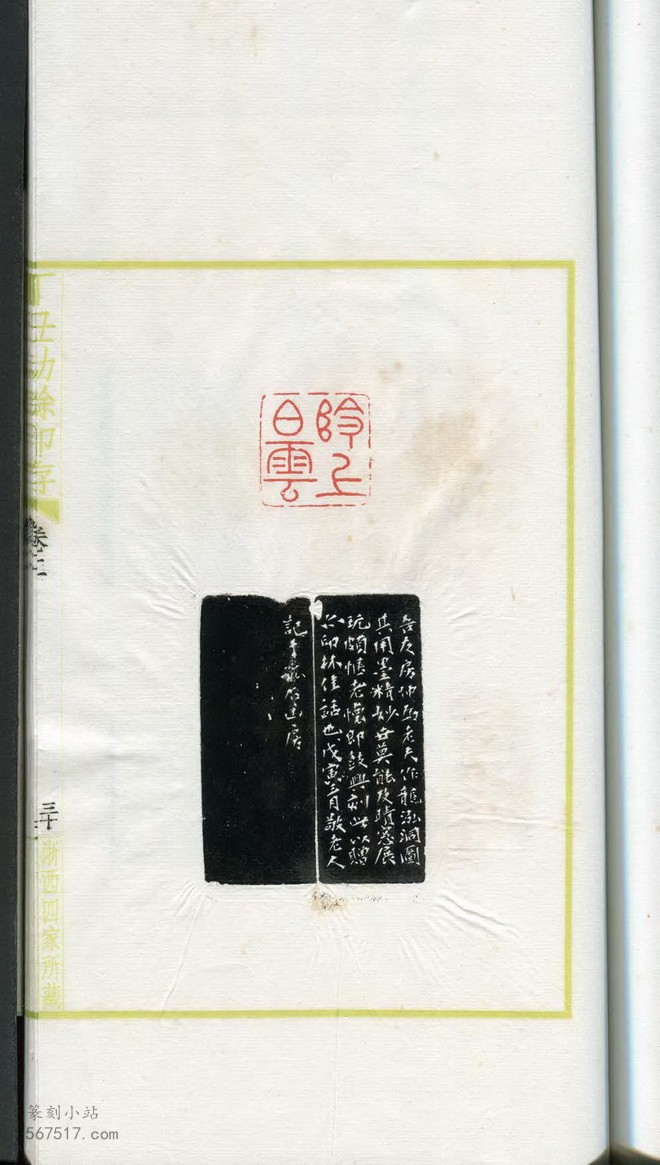 阾上
白雲
吾友房仲為老夫作龍泓洞圖
其用墨精妙世莫能及晴窗展
玩頗愜老懷即鼓興刻此以贈
亦印林佳話也戊寅三月敬老人
記于 房
丁丑劫餘印存
卷
三十
浙西四家所藏
篆刻小站
567517.com